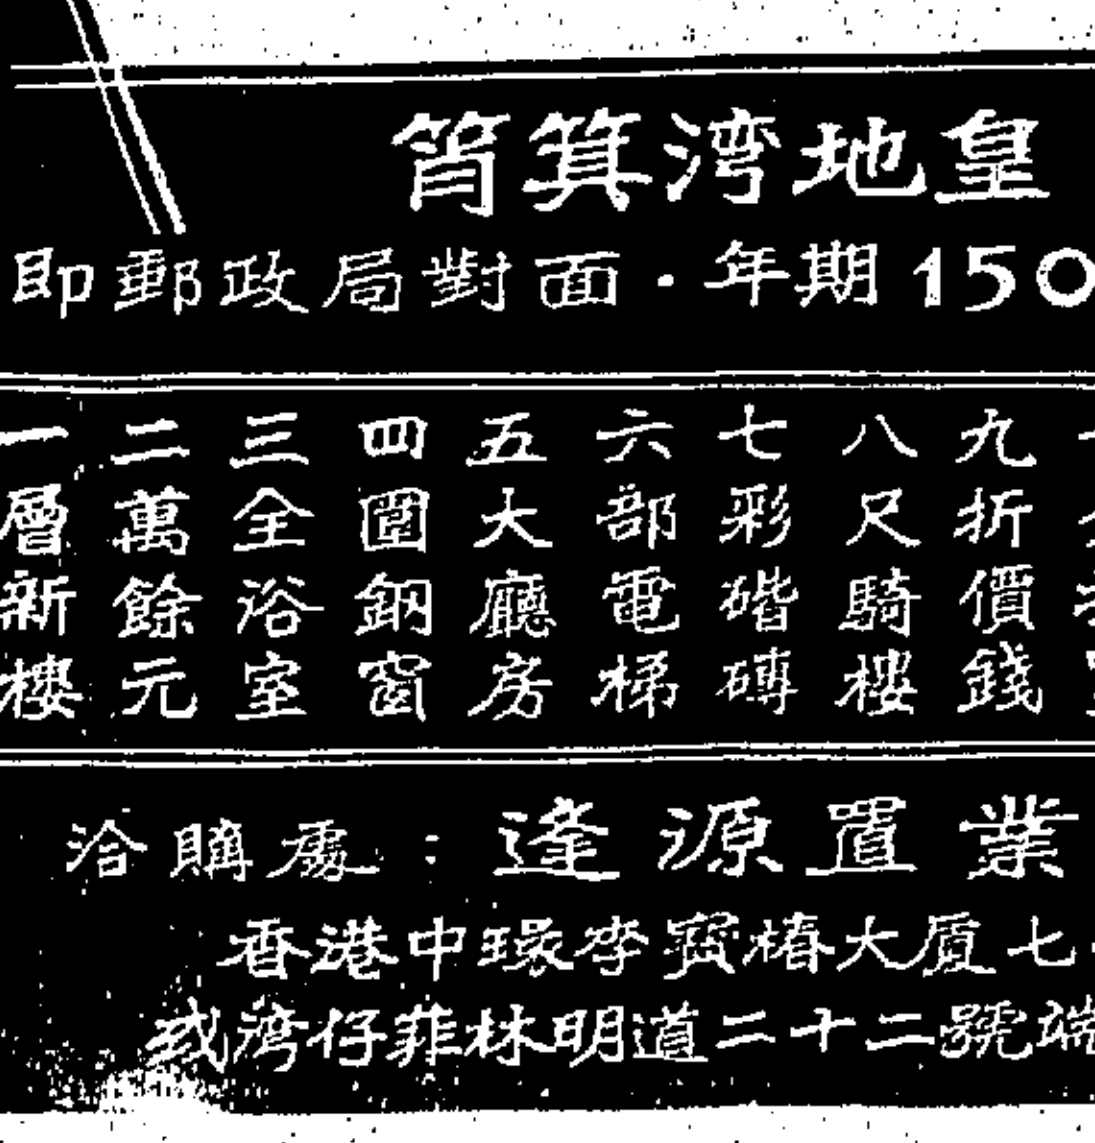 筲箕湾地皇
即郵政局對面．年期150
一層新樓
二萬餘元
三全浴室
四圍鋼窗
五大廳房
六部電梯
七彩磚
八尺騎樓
九折價錢
洽購處：逢源置業
香港中環李寶椿大廈七
或湾仔菲林明道二十二號